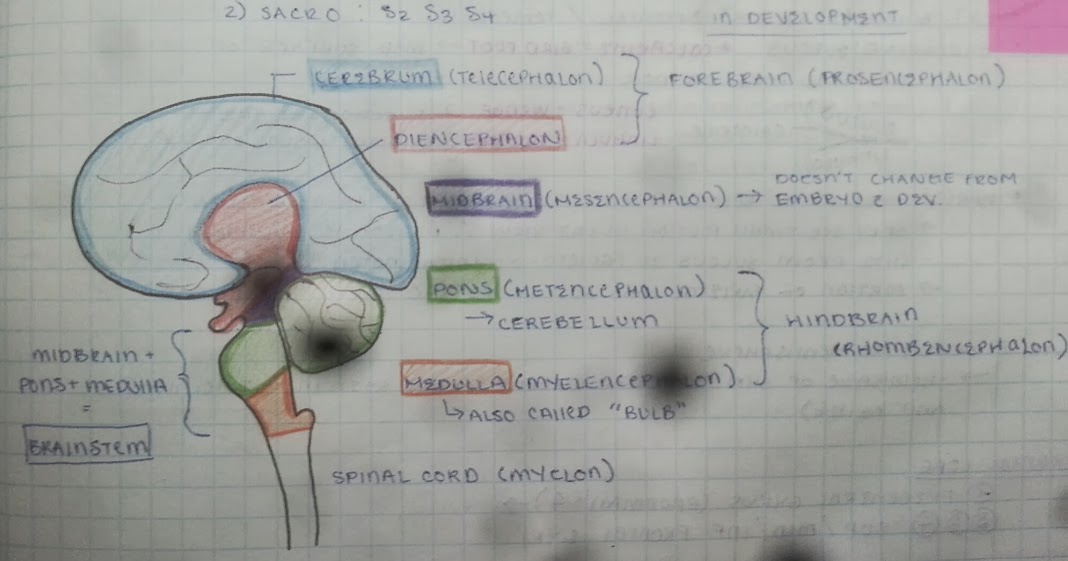 2) SACRO : S2 S3 S4
IN DEVELOPMENT
CEREBRUM (TELECEPHALON)
FOREBRAIN (PROSENCEPHALON)
DIENCEPHALON
MIDBRAIN (MESENCEPHALON) → DOESN'T CHANGE FROM
EMBRYO 2 DEV.
PONS (METENCEPHALON)
→ CEREBELLUM
HINDBRAIN
(RHOMBENCEPHALON)
MEDULLA (MYELENCEPHALON)
↳ ALSO CALLED "BULB"
MIDBRAIN +
PONS + MEDULLA
=
BRAINSTEM
SPINAL CORD (MYELON)